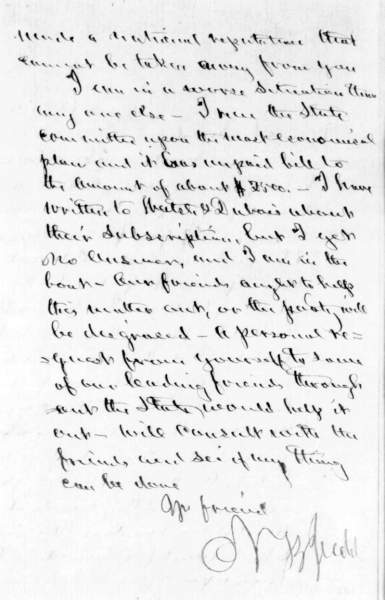 made a national reputation that
cannot be taken away from you
I am in a worse situation than
any one else – I run the State
committee upon the most economical
plan and it has unpaid bills to
the amount of about $2500. – I have
written to Hatch & Dubois about
their subscription, but I get
no answer, and I am in the
boat – Our friends ought to help
this matter out, or the party will
be disgraced – A personal re=
=quest from yourself to some
of our leading friends through
out the State, would help it
out – Will consult with the
friends and see if any thing
can be done
Yr friend
N B Judd